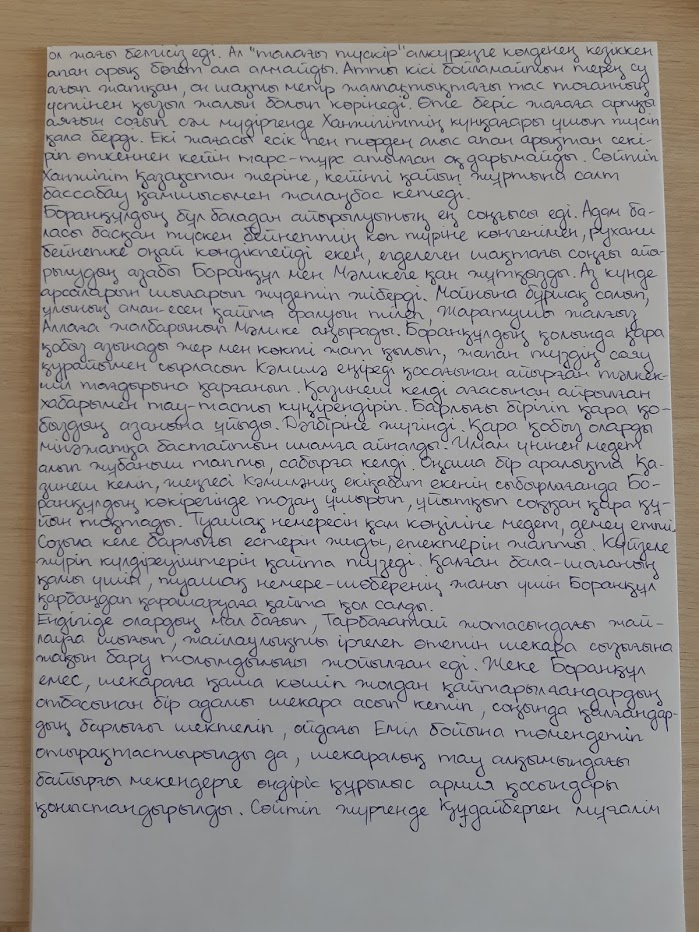 ол жағы белгісіз еді. Ал "талағы тускір" алкүреңге көлденең кезіккен
апан арық бөгет ала алмайды. Атты кісі бойламайтын терең су
ағып жатқан, он шақты метір жалпақтықтағы тас тоғанның
үстінен қызыл жалын болып көрінеді. Өтіс беріс жағаға артқы
аяғын соғып сәл мүдіргенде Ханжігіттің күнқағары ұшып түсіп
қала берді. Екі жағасы есік пен төрден алыс апан арықтан секі-
ріп өткеннен кейін тарс-тұрс атылған оқ дарымайды. Сөйтіп
Ханжігіт Қазақстан жеріне, кейінгі қайың жұртына салт
бассабау қамшысымен жалаңбас кетеді.
Боранқұлдың бұл баладан айырылуының ең соңғысы еді. Адам ба-
ласы басқан түскен бейнеттің көп түріне көнгенімен, рухани
бейнетке оңай көндікпейді екен, егделеген шақтағы соңғы айы-
рылудың азабы Боранқұл мен Мәликеге қан жұтқызды. Аз күнде
арсаларын шыларып жүдетіп жіберді. Мойнына бұршақ салып,
ұлының аман-есен қайта оралуын тілеп, жаратушы жалғыз
Аллаға жалбарынып Мәлике аңырады. Боранқұлдың қолында қара
қобыз азынады жер мен көкті жат қылып, жапан түздің сазу
құрайымен сырласып Кәмилә еңіреді қосағынан айырған тәлкек-
шіл тағдырына қарғанып. Қазинеш келді ағасынан айрылған
хабарымен тау-тасты күңірендіріп. Барлығы бірігіп қара қо-
быздың азанына ұйыды. Дәбіріне жүгінді. Қара қобыз оларды
мінәжатқа бастайтын имамға айналды. Имам үнінен медет
алып жұбаныш тапты, сабырға келді. Оңаша бір аралықта Қа-
зинеш келіп, жеңгесі Кәмиләның екіқабат екенін сыбырлағанда Бо-
ранқұлдың көкірегінде тозаң ұшырып, ұйытқып соққан қара құ-
йын тоқтады. Туашақ немересін қам көңіліне медет, демеу етті.
Созыла келе барлығы естерін жиды, етектерін жапты. Күйзеле
жүріп күлдіреуіштерін қайта түзеді. Қалған бала-шағаның
қамы үшін, туашақ немере-шөберенің жаны үшін Боранқұл
қарбаңдап қарашаруаға қайта қол салды.
Ендігіде олардың мал бағып, Тарбағатай жотасындағы жай-
лауға шығып, жайлаулықты іргелеп өтетін шекара сызығына
жақын бару толымдылығы жойылған еді. Жеке Боранқұл
емес, шекараға қаша көшіп жолдан қайтарылғандардың
отбасынан бір адамы шекара асып кетіп, соңында қалғандар-
дың барлығы шектеліп, ойдағы Еміл бойына төмендетіп
отырақтастырылды да, шекаралық тау алқымындағы
байырғы мекендерге өндіріс құрылыс армия қосындары
қоныстандырылды. Сөйтіп жүргенде Құдайберген мұғалім